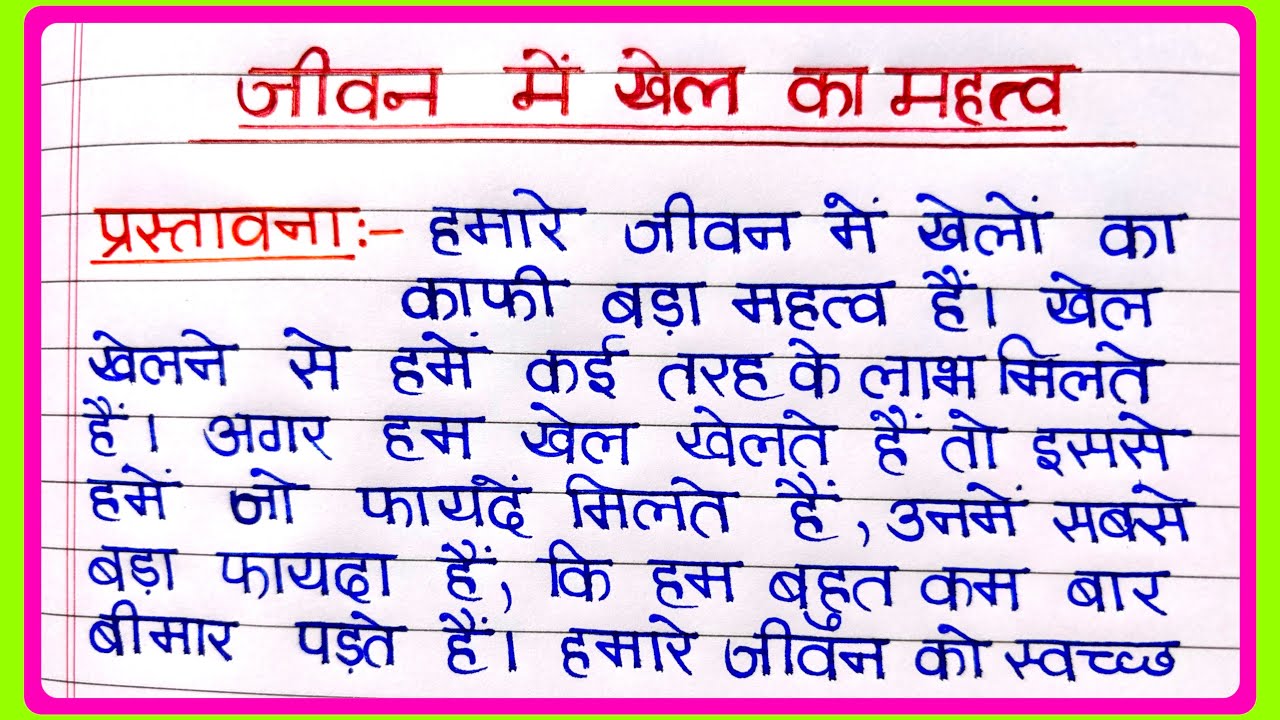 जीवन में खेल का महत्व
प्रस्तावना:- हमारे जीवन में खेलों का
काफी बड़ा महत्व हैं। खेल
खेलने से हमें कई तरह के लाभ मिलते
हैं। अगर हम खेल खेलते हैं तो इससे
हमें जो फायदें मिलते हैं, उनमें सबसे
बड़ा फायदा हैं, कि हम बहुत कम बार
बीमार पड़ते हैं। हमारे जीवन को स्वच्छ